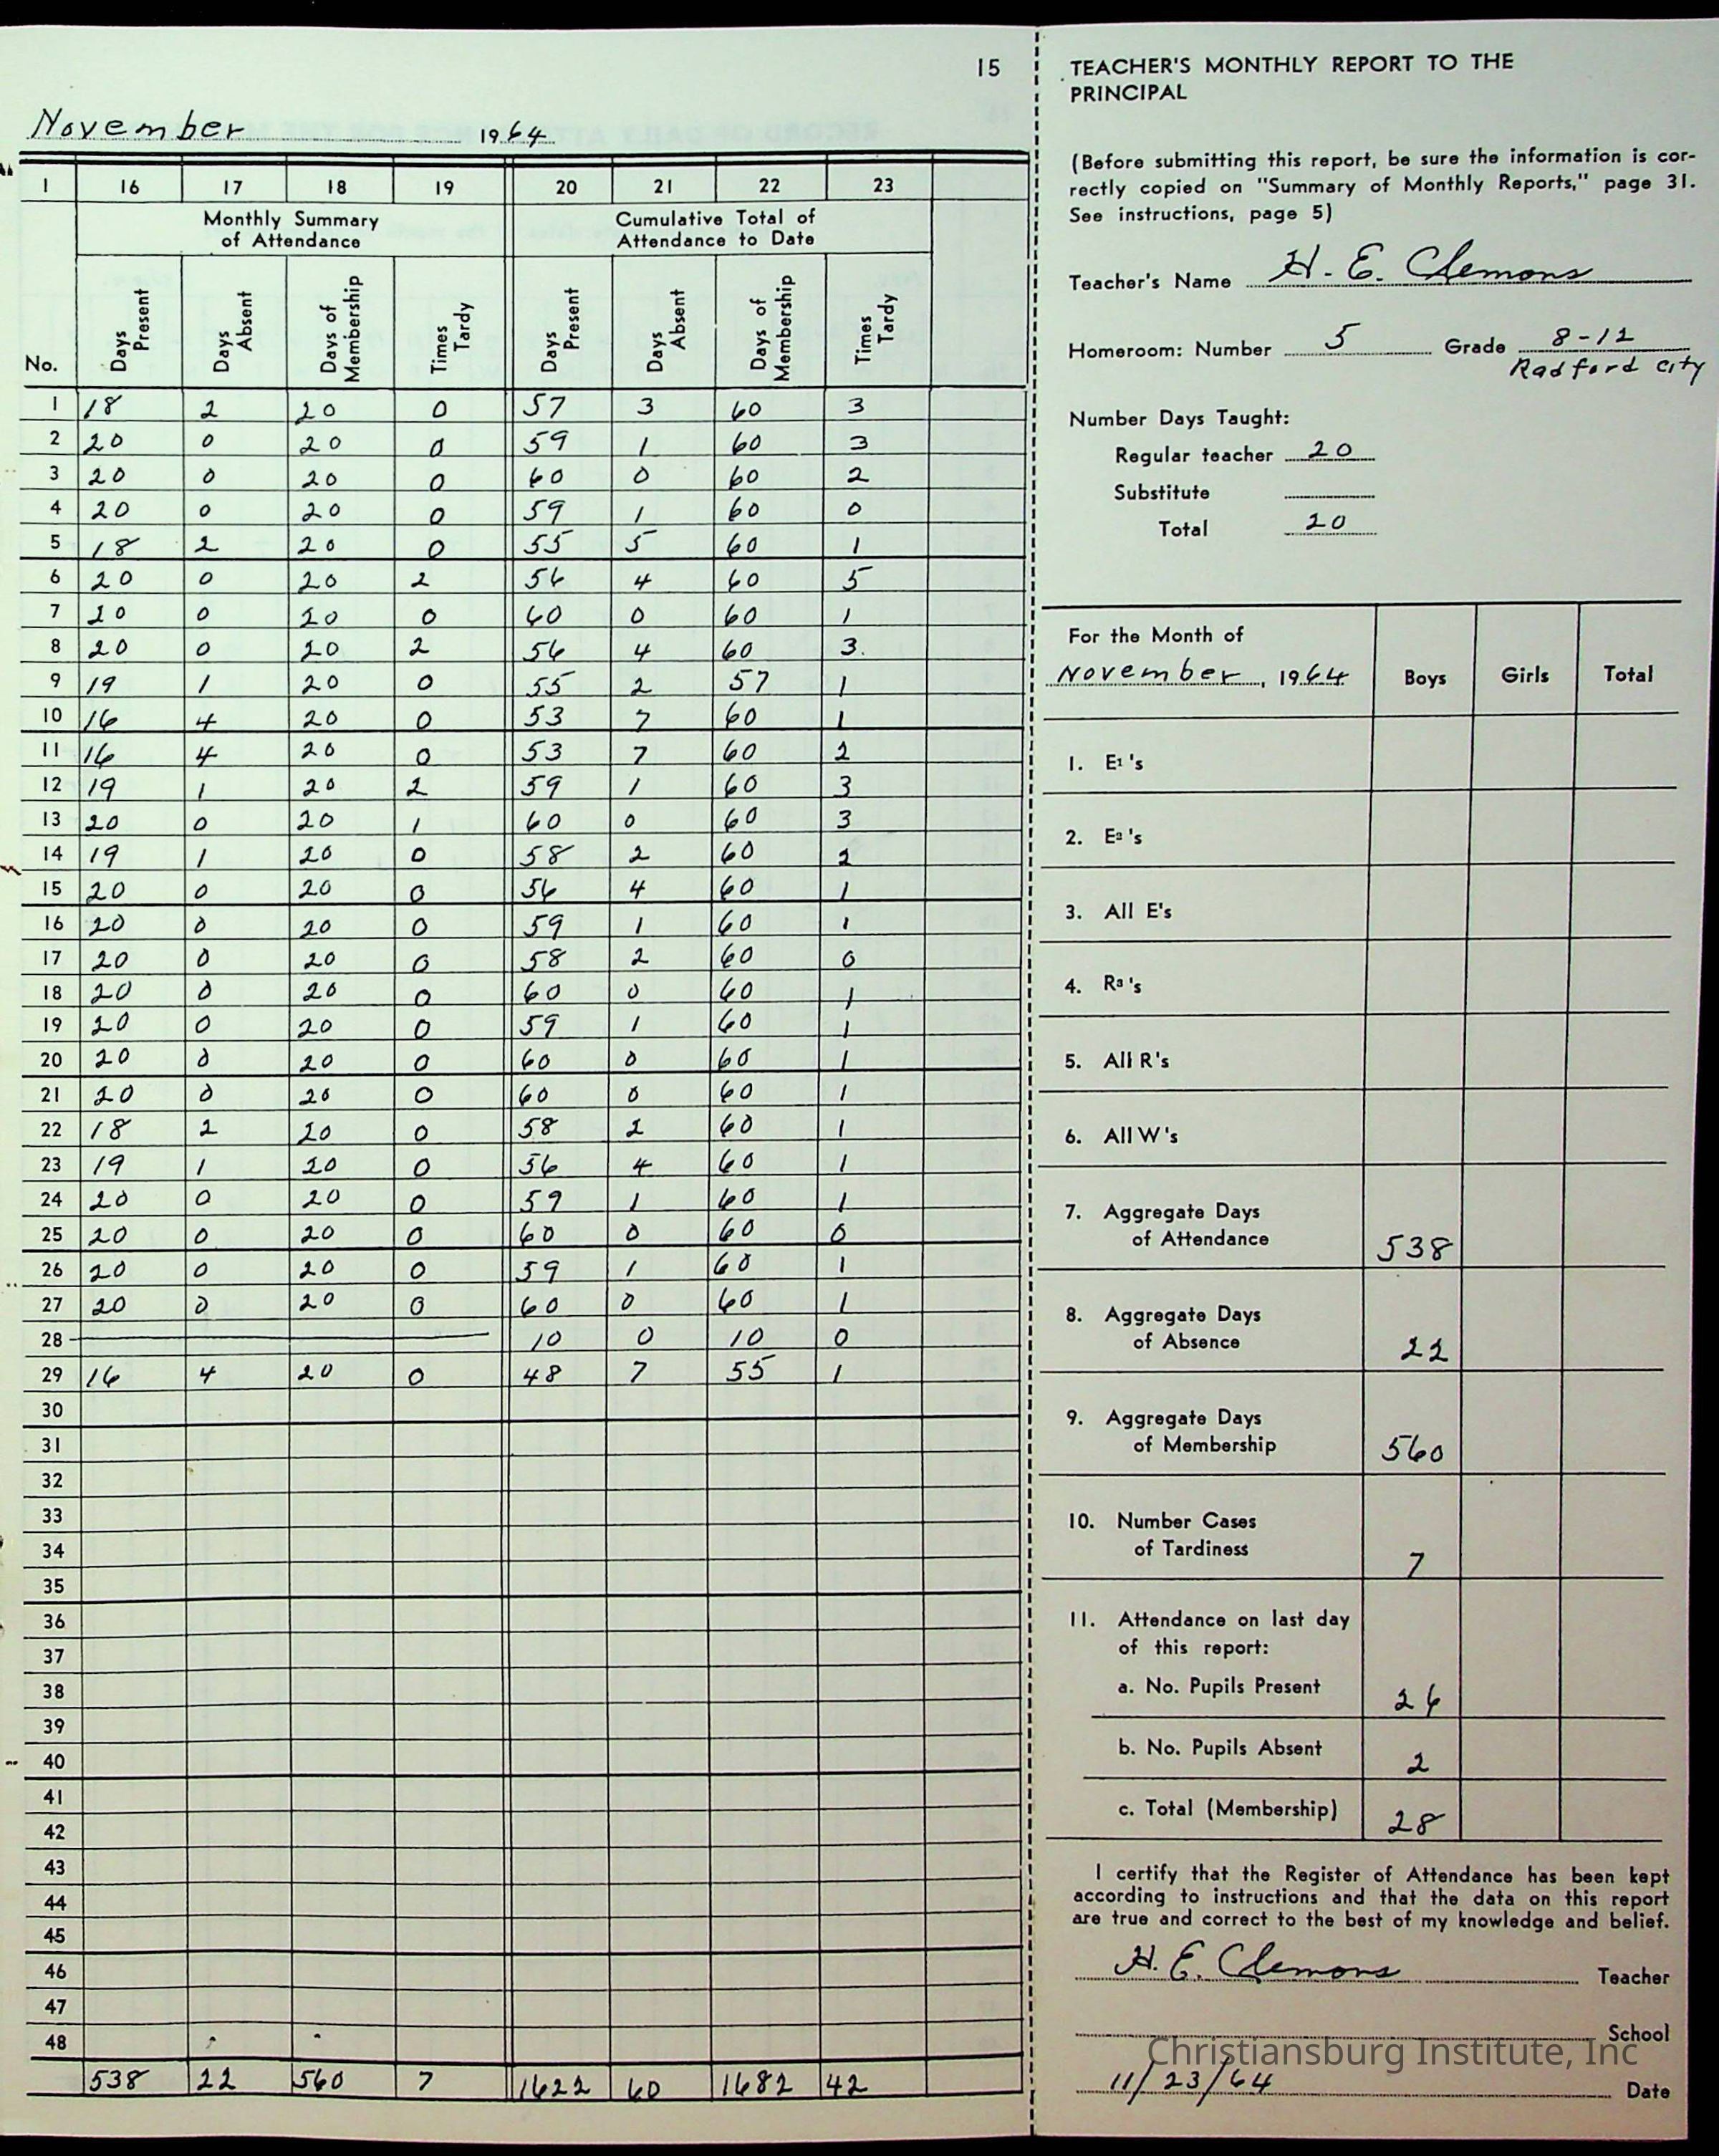 15
November 1964
1 16 17 18 19 20 21 22 23
Monthly Summary of Attendance Cumulative Total of Attendance to Date
No. Days Present Days Absent Days of Membership Times Tardy Days Present Days Absent Days of Membership Times Tardy
1 18 2 20 0 57 3 60 3
2 20 0 20 0 59 1 60 3
3 20 0 20 0 60 0 60 2
4 20 0 20 0 59 1 60 0
5 18 2 20 0 55 5 60 1
6 20 0 20 2 56 4 60 5
7 20 0 20 0 60 0 60 1
8 20 0 20 2 56 4 60 3.
9 19 1 20 0 55 2 57 1
10 16 4 20 0 53 7 60 1
11 16 4 20 0 53 7 60 2
12 19 1 20 2 59 1 60 3
13 20 0 20 1 60 0 60 3
14 19 1 20 0 58 2 60 2
15 20 0 20 0 56 4 60 1
16 20 0 20 0 59 1 60 1
17 20 0 20 0 58 2 60 0
18 20 0 20 0 60 0 60 1
19 20 0 20 0 59 1 60 1
20 20 0 20 0 60 0 60 1
21 20 0 20 0 60 0 60 1
22 18 2 20 0 58 2 60 1
23 19 1 20 0 56 4 60 1
24 20 0 20 0 59 1 60 1
25 20 0 20 0 60 0 60 0
26 20 0 20 0 59 1 60 1
27 20 0 20 0 60 0 60 1
28 10 0 10 0
29 16 4 20 0 48 7 55 1
30
31
32
33
34
35
36
37
38
39
40
41
42
43
44
45
46
47
48
538 22 560 7 1622 60 1682 42
TEACHER'S MONTHLY REPORT TO THE
PRINCIPAL
(Before submitting this report, be sure the information is cor-
rectly copied on "Summary of Monthly Reports," page 31.
See instructions, page 5)
Teacher's Name H. E. Clemons
Homeroom: Number 5 Grade 8-12
Radford City
Number Days Taught:
Regular teacher 20
Substitute
Total 20
For the Month of
November, 1964 Boys Girls Total
1. E1's
2. E2's
3. All E's
4. R3's
5. All R's
6. All W's
7. Aggregate Days
of Attendance 538
8. Aggregate Days
of Absence 22
9. Aggregate Days
of Membership 560
10. Number Cases
of Tardiness 7
11. Attendance on last day
of this report:
a. No. Pupils Present 26
b. No. Pupils Absent 2
c. Total (Membership) 28
I certify that the Register of Attendance has been kept
according to instructions and that the data on this report
are true and correct to the best of my knowledge and belief.
H. E. Clemons Teacher
School
Christiansburg Institute, Inc
11/23/64 Date